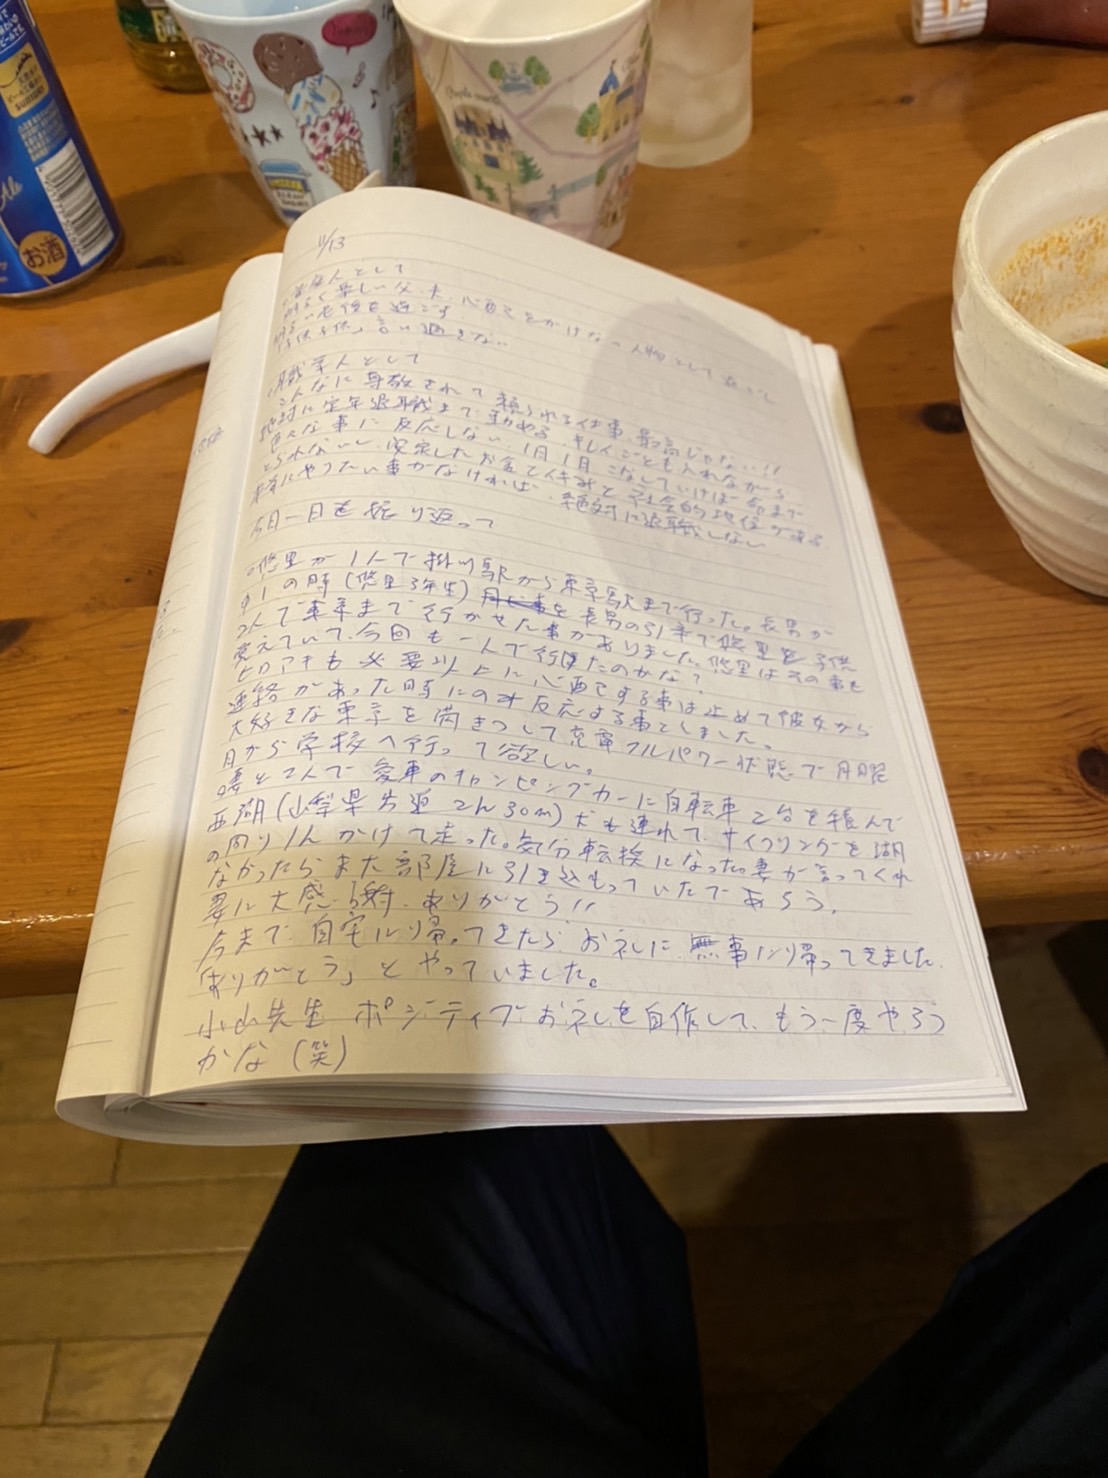 お酒
Ale
11/13
家庭人として
明るく楽しい父、夫、心配をかけない人物として
明るい老後を過ごす
言い過ぎない
職業人として
こんなに尊敬されて頼られる仕事、最高じゃない!!
絶対に定年退職まで勤める
色々な事に反応しない、1日1日こなしていけば
とられないし、安定したお金と社会的地位がある
本当にやりたい事がなければ、絶対に退職しない
今日一日を振り返って
○悠里が1人で掛川駅から東京駅まで行った。長男が
中1の時(悠里3年生)長男の引率で悠里を子供
2人で東京まで行かせた事がありました。悠里はその事を
覚えていて、今回も一人で行けたのかな?
ヒロアキも必要以上に心配する事は止めて彼女から
連絡があった時にのみ反応する事としました。
大好きな東京を満きつして充電フルパワー状態で月曜
日から学校へ行って欲しい。
○妻と2人で愛車のキャンピングカーに自転車2台を積んで
西湖(山梨県片道2h30m)犬も連れて、サイクリングを湖
の周り1hかけて走った。気分転換になった。妻が言ってくれ
なかったらまた部屋に引き込もっていたであろう。
妻に大感謝、ありがとう!!
今まで、自宅に帰ってきたら、お礼に「無事に帰ってきました。
ありがとう」とやっていました。
小山先生 ポジティブお礼を自作して、もう一度やろう
かな(笑)